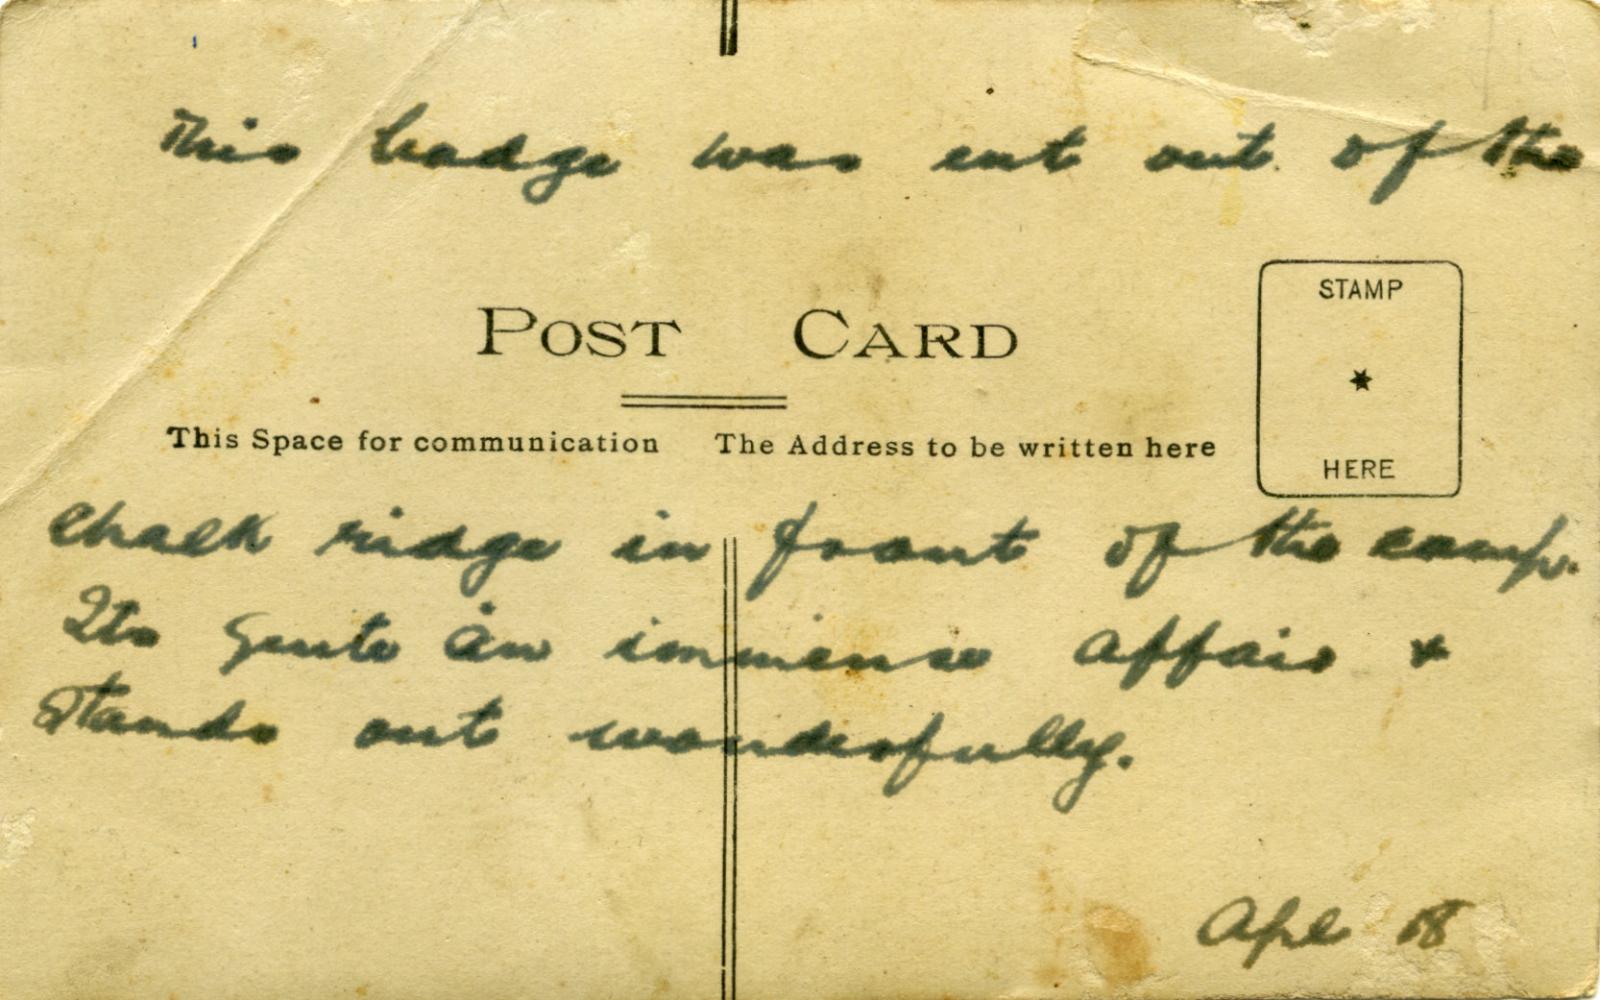 This badge was cut out of the
POST CARD
STAMP
HERE
This Space for communication The Address to be written here
chalk ridge in front of the camp.
Its quite an immense affair &
stands out wonderfully.
Apl 18